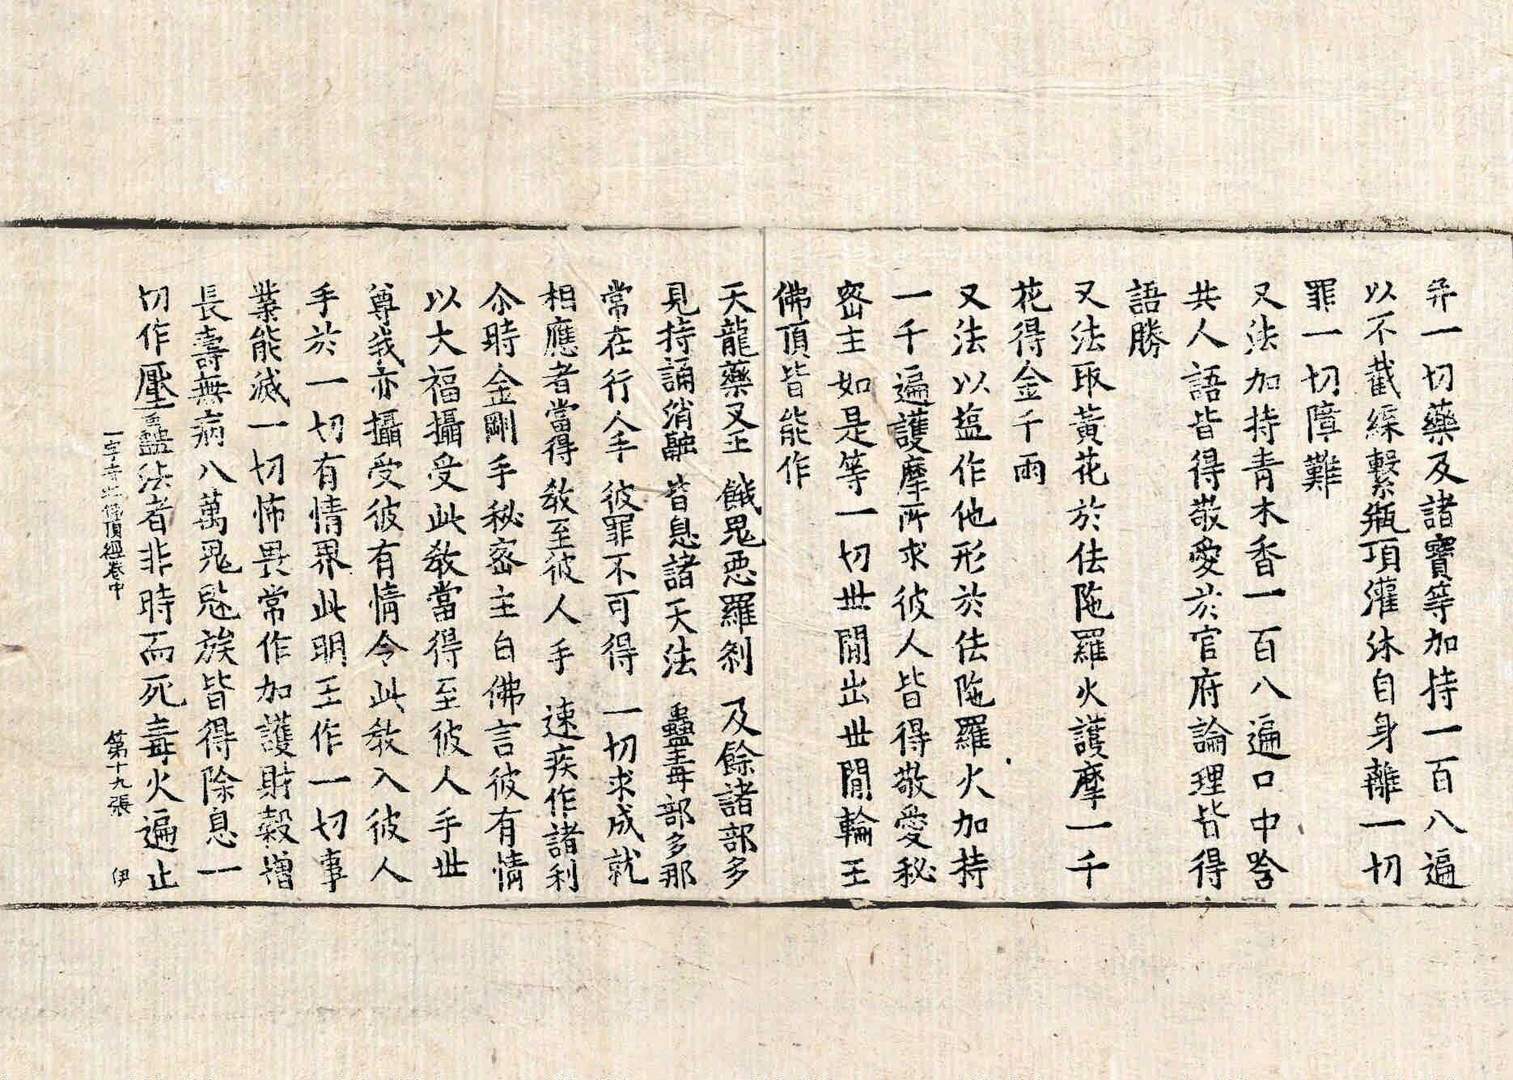 并一切藥及諸寶等加持一百八遍
以不截綵繫瓶頂灌沐自身離一切
罪一切障難
又法加持青木香一百八遍口中含
共人語皆得敬愛於官府論理皆得
語勝
又法取黃花於佉陁羅火護摩一千
花得金千兩
又法以塩作他形於佉陁羅火加持
一千遍護摩所求彼人皆得敬愛秘
密主如是等一切世間出世間輪王
佛頂皆能作
天龍藥叉王 餓鬼惡羅剎 及餘諸部多
見持誦消融 皆息諸天法 蠱毒部多那
常在行人手 彼罪不可得 一切求成就
相應者當得 教至彼人手 速疾作諸利
尒時金剛手秘密主白佛言彼有情
以大福攝受此教當得至彼人手世
尊我亦攝受彼有情令此教入彼人
手於一切有情界此明王作一切事
業能滅一切怖畏常作加護財穀增
長壽無病八萬鬼魅族皆得除息一
切作壓蠱法者非時而死毒火遍止
一字奇特佛頂經卷中 第十九張 伊